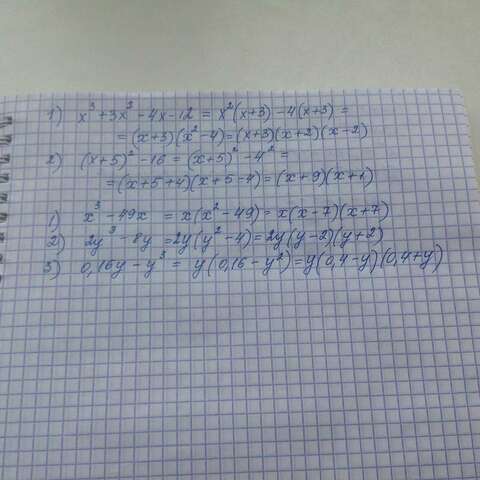 1) x³+3x²-4x-12 = x²(x+3)-4(x+3)=
=(x+3)(x²-4)=(x+3)(x+2)(x-2)
2) (x+5)²-16=(x+5)²-4²=
=(x+5+4)(x+5-4)=(x+9)(x+1)
1) x³-49x = x(x²-49)=x(x-7)(x+7)
2) 2y³-8y=2y(y²-4)=2y(y-2)(y+2)
3) 0,16y-y³= y(0,16-y²)=y(0,4-y)(0,4+y)